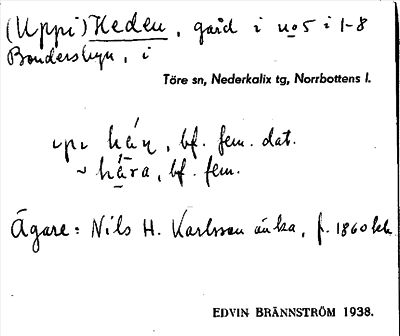 (Uppi) Heden, gård i no 5 i 1-8
Bondersbyn, i
Töre sn, Nederkalix tg, Norrbottens l.
bf. fem. dat.
bf. fem.
Ägare: Nils H. Karlsson änka, f. 1860
EDVIN BRÄNNSTRÖM 1938.